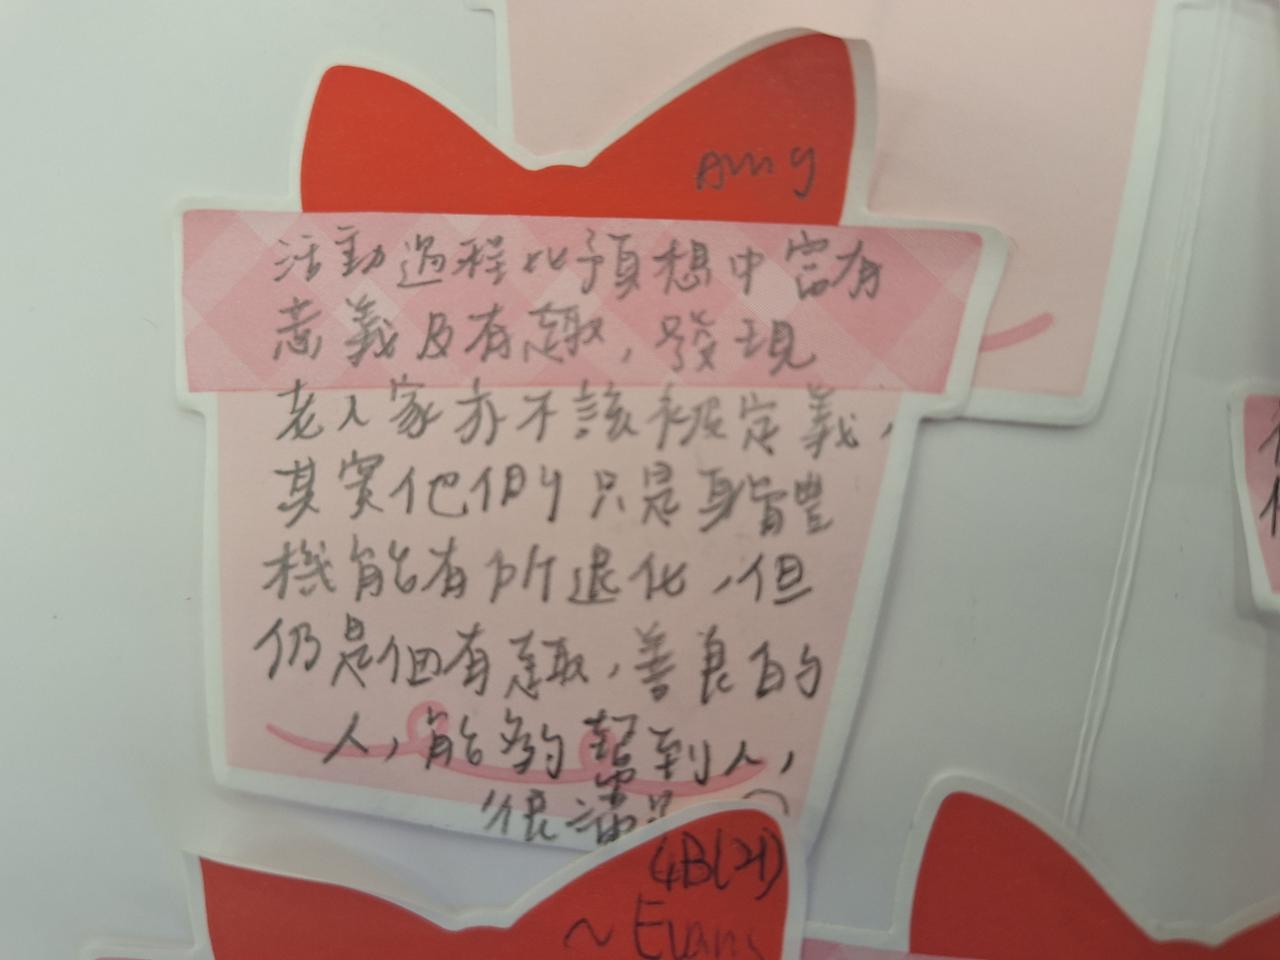 Amy
活動過程比預想中富有
意義及有趣，發現
老人家亦不該被定義，
其實他們只是身體
機能有所退化，但
仍是個有趣，善良的
人，能夠幫到人，
很滿足
4B(21)
~ Evans